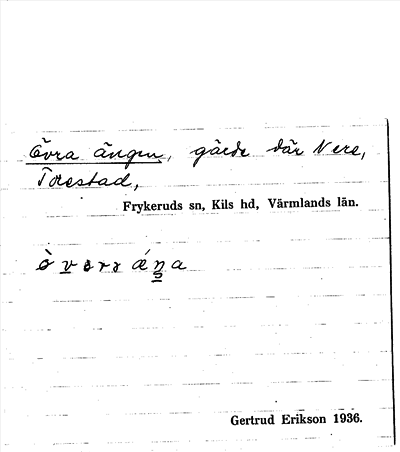 Övra ängen, gärde där Nere,
Torestad,
Frykeruds sn, Kils hd, Värmlands län.
Gertrud Erikson 1936.